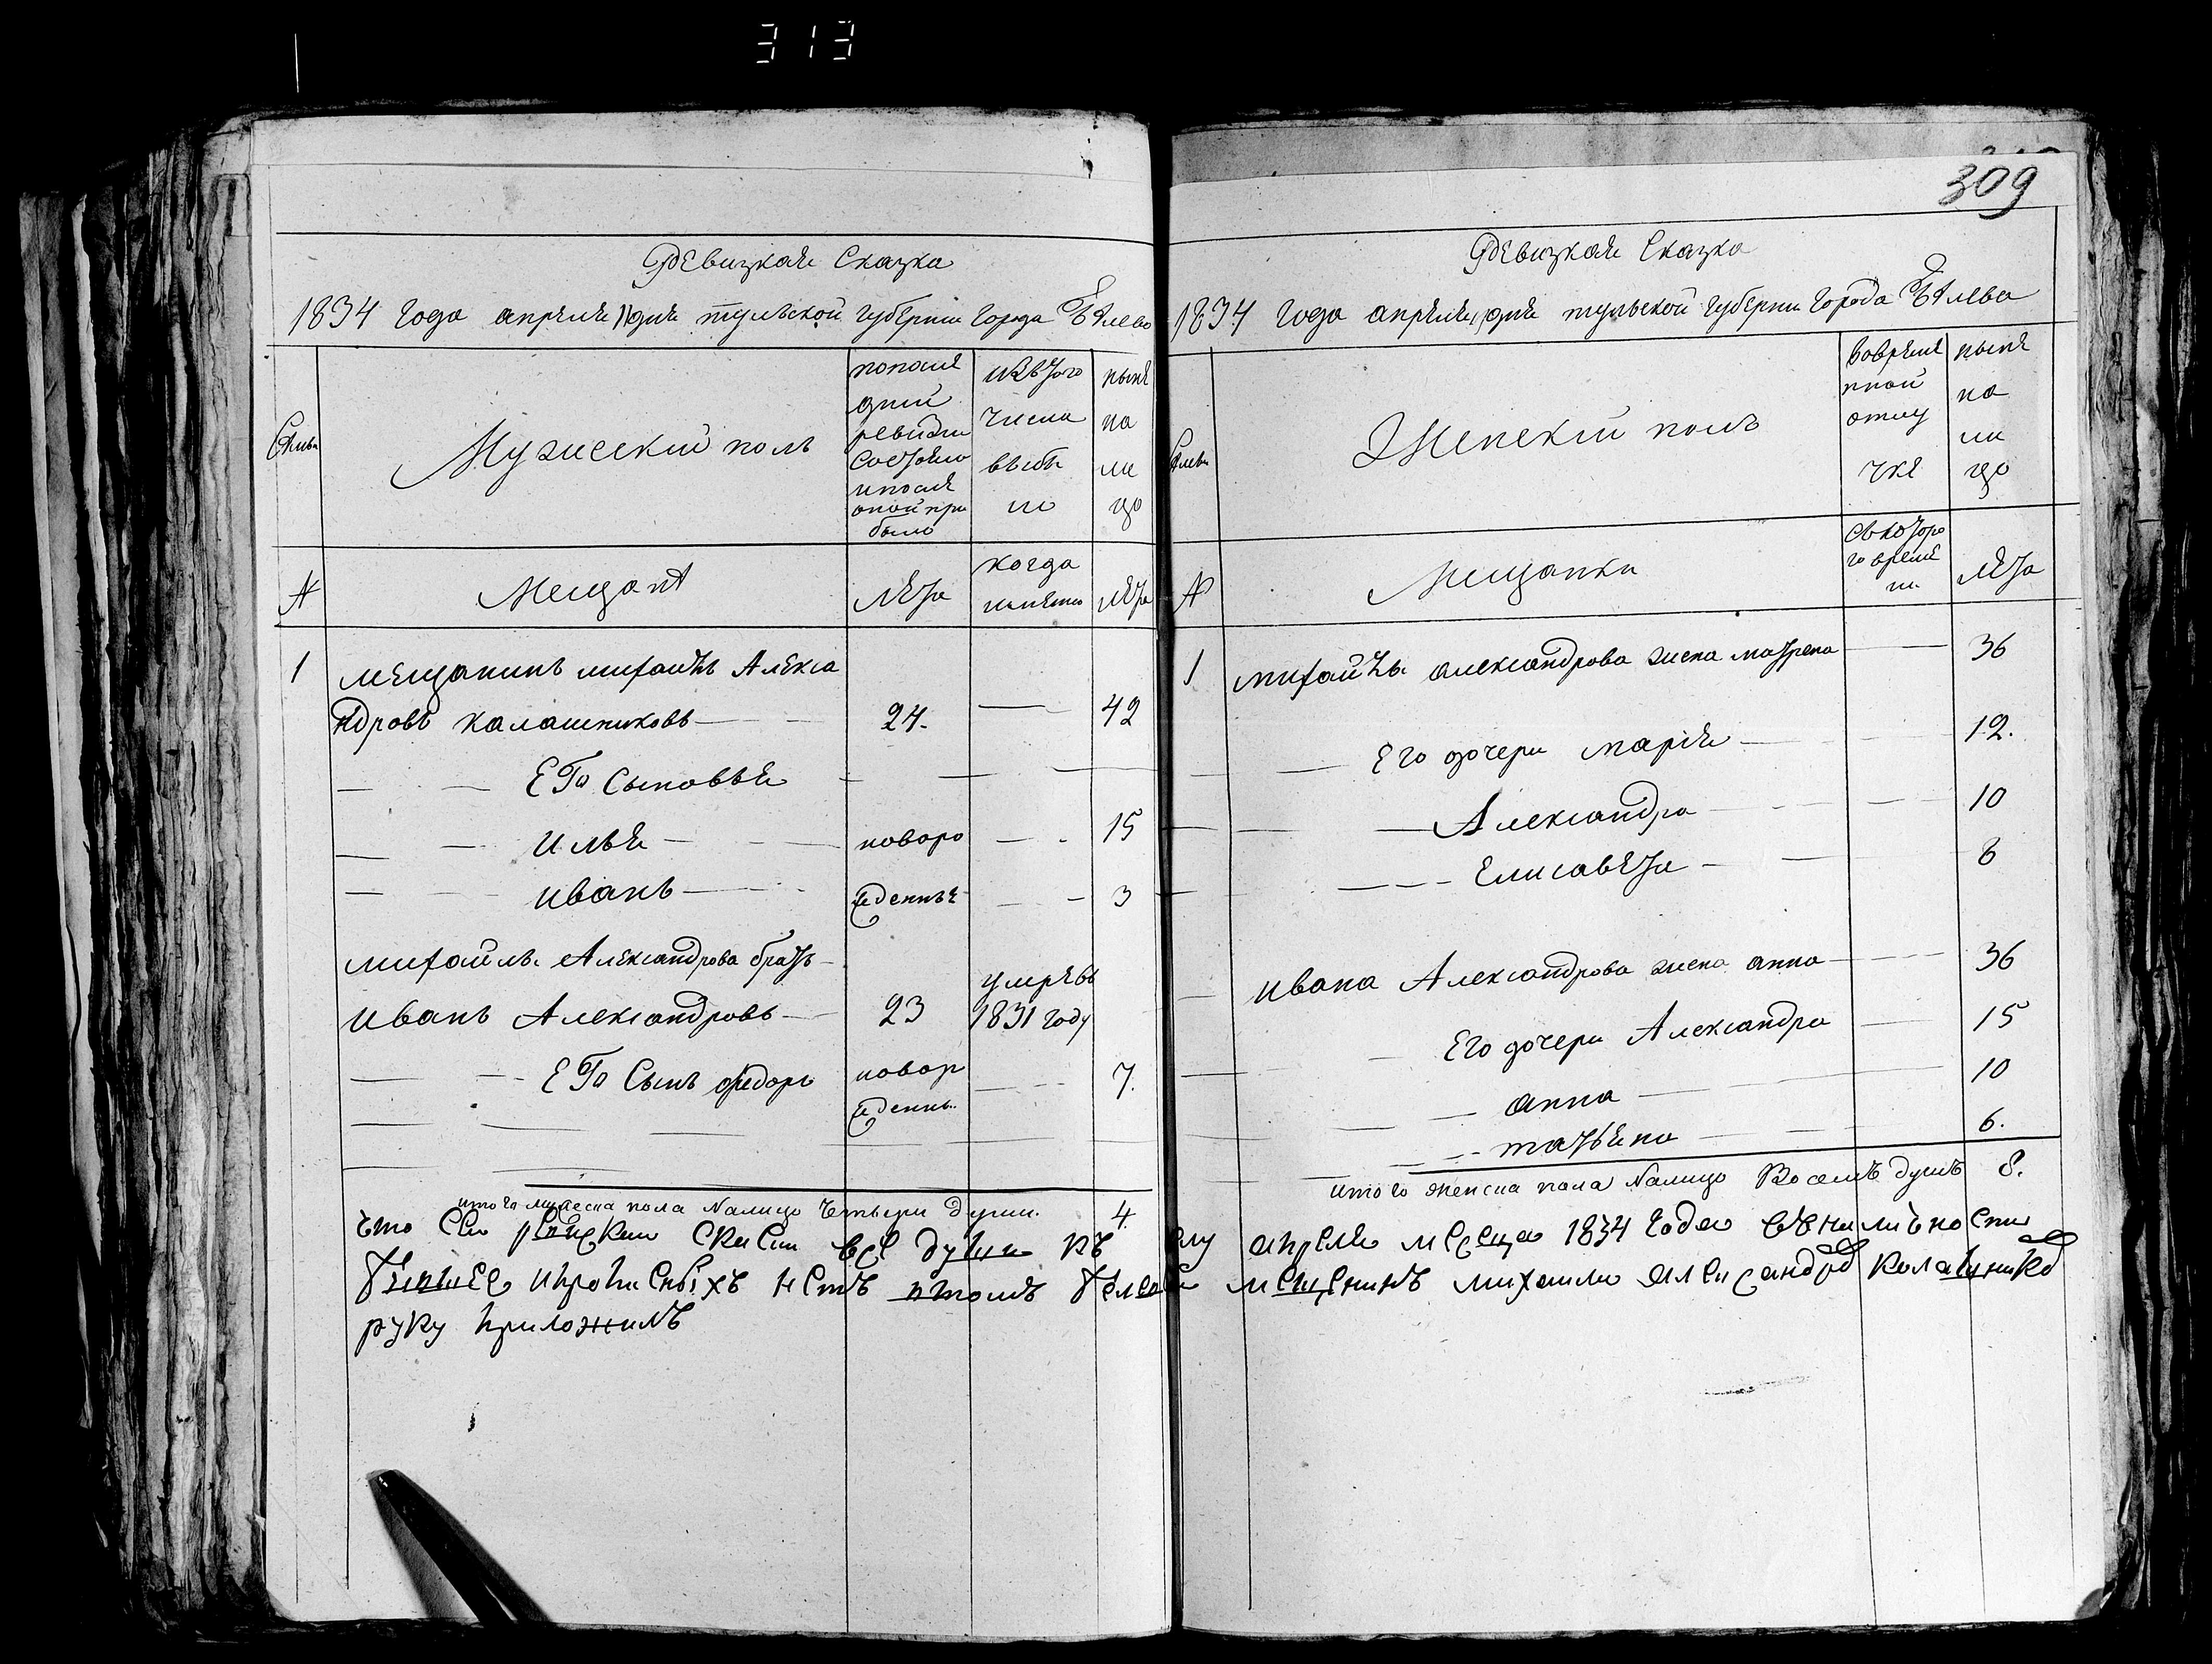 313
Ревизкая Сказка
1834 Года апреля дня тульской губернии города Белева
Семьи
Мужиской полъ
попосле
дней
ревизии
состояло
ипосле
оной при
было
изътого
числа
выбы
ло
ныне
на
ли
цо
№
Мещане
Лета
когда
именно
лета
1
мещанинъ михайла Алекса
ндровъ калашниковъ
24.
42
Его Сыновья
илья
новоро
15
иванъ
жденные
3
михайлы Александрова братъ
иванъ Александровъ
23
умревъ
1831 году
Его Сынъ федоръ
новор
жденнъ
7.
итого мужеска пола Налицо четыри души.
4.
309
Ревизкая Сказка
1834 года апреля дня тульской губернии города Белева
Семьи
Женский полъ
вовремя
нной
отлу
чке
ныне
на
ли
цо
№
Мещанки
съкоторо
го време
ни
лета
1
михайлы александрова жена матрена
36
Его дочери мария
12.
Александра
10
Елисавета
8
ивана Александрова жена анна
36
Его дочери Александра
15
анна
10
татьяна
6.
итого женска пола Налицо Восемъ душъ
8.
что Сеи Скаски все души къ ему апреля месеца 1834 года
ипрописныхъ нетъ втомъ мещенинъ михаила александров калашников
руку приложилъ